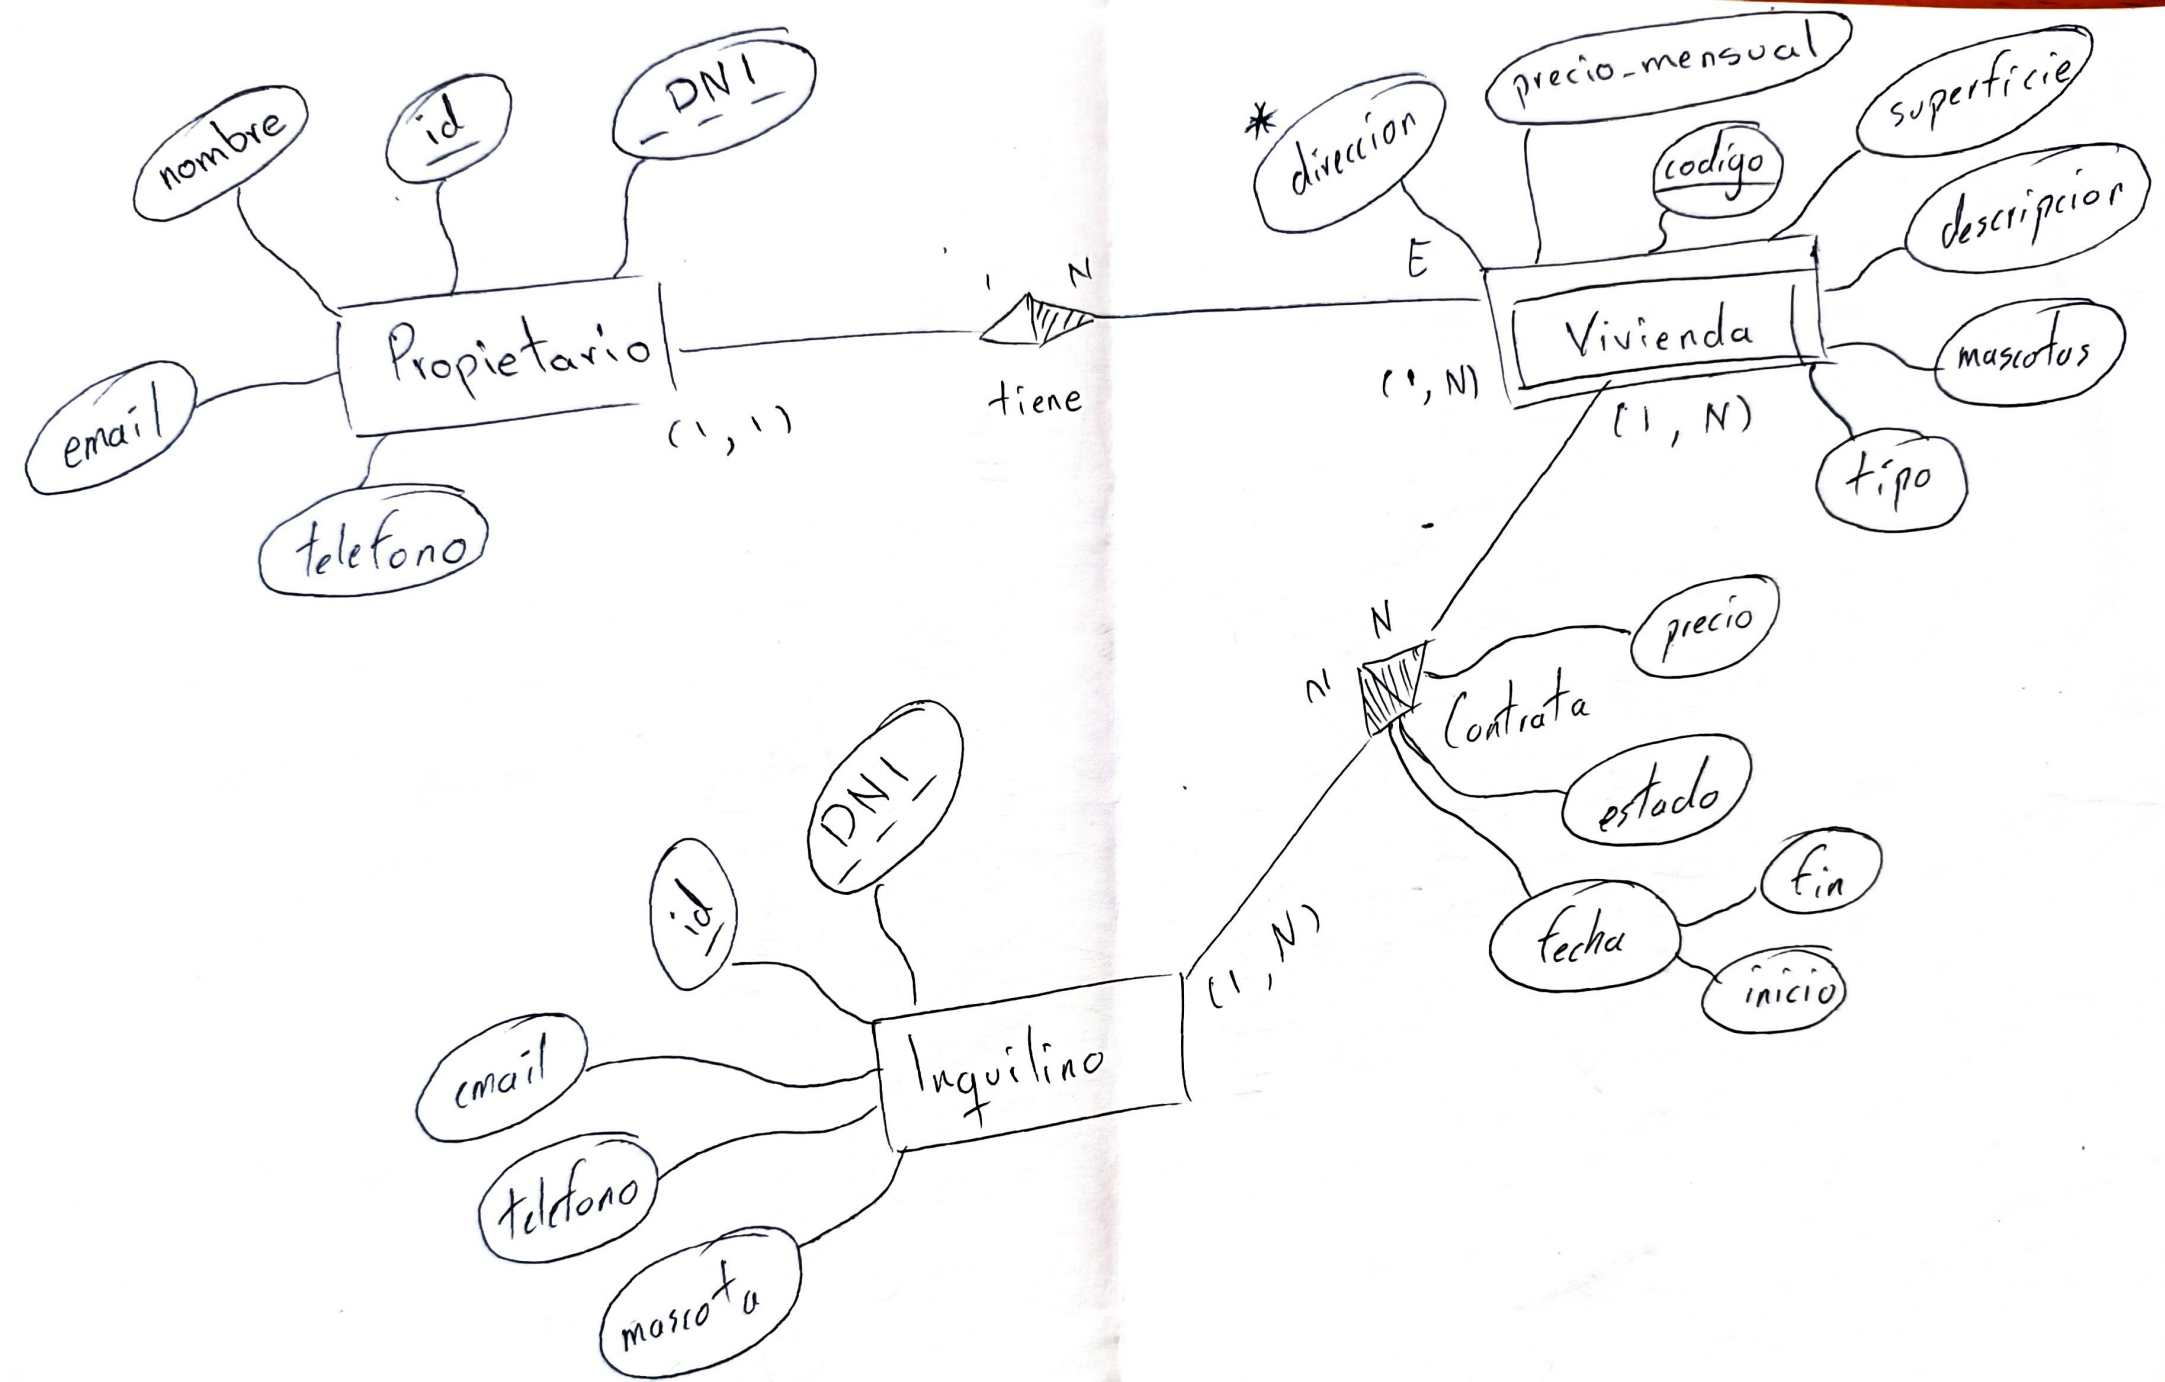 nombre
id
DNI
Propietario
email
telefono
(1,1)
1 N
tiene
* direccion
precio_mensual
codigo
superficie
descripcion
mascotas
tipo
E
Vivienda
(1,N)
(1,N)
N
Contrata
precio
estado
fecha
fin
inicio
DNI
id
email
telefono
mascota
Inquilino
(1,N)